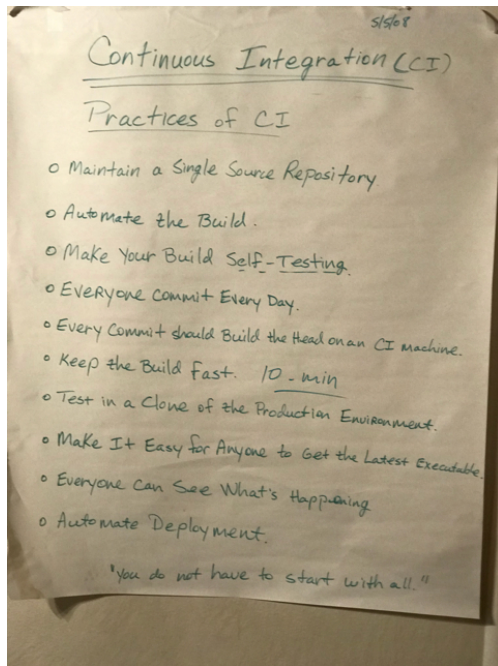 5/5/08
Continuous Integration (CI)
Practices of CI
o Maintain a Single Source Repository.
o Automate the Build.
o Make Your Build Self-Testing.
o Everyone Commit Every Day.
o Every Commit should Build the Head on an CI Machine.
o Keep the Build Fast. 10-min
o Test in a Clone of the Production Environment.
o Make It Easy for Anyone to Get the Latest Executable.
o Everyone Can See What's Happening
o Automate Deployment.
"You do not have to start with all."